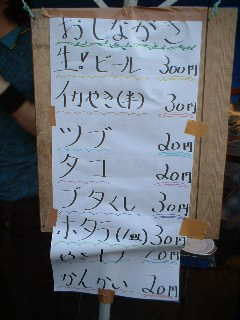 おしながき
生！ビール 300円
イカやき(半) 30円
ツブ 20円
タコ 20円
ブタくし 30円
ホタテ(1コ) 30円
20円
かんかい 20円